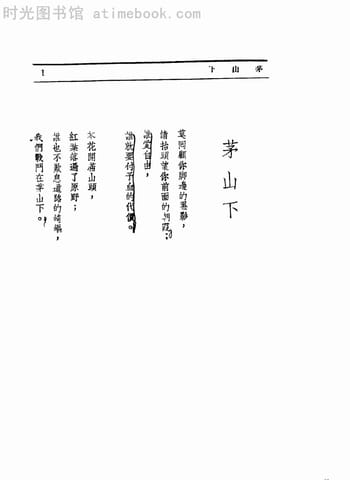 时光图书馆 - atimebook.com
茅山下
1
茅山下
莫回顧你脚邊的黑影，
請抬頭望你前面的朝霞；
誰愛自由，
誰就要付予血的代價。
茶花開滿山頭，
紅葉落遍了原野；
誰也不歎息道路的崎嶇，
我們戰鬥在茅山下。